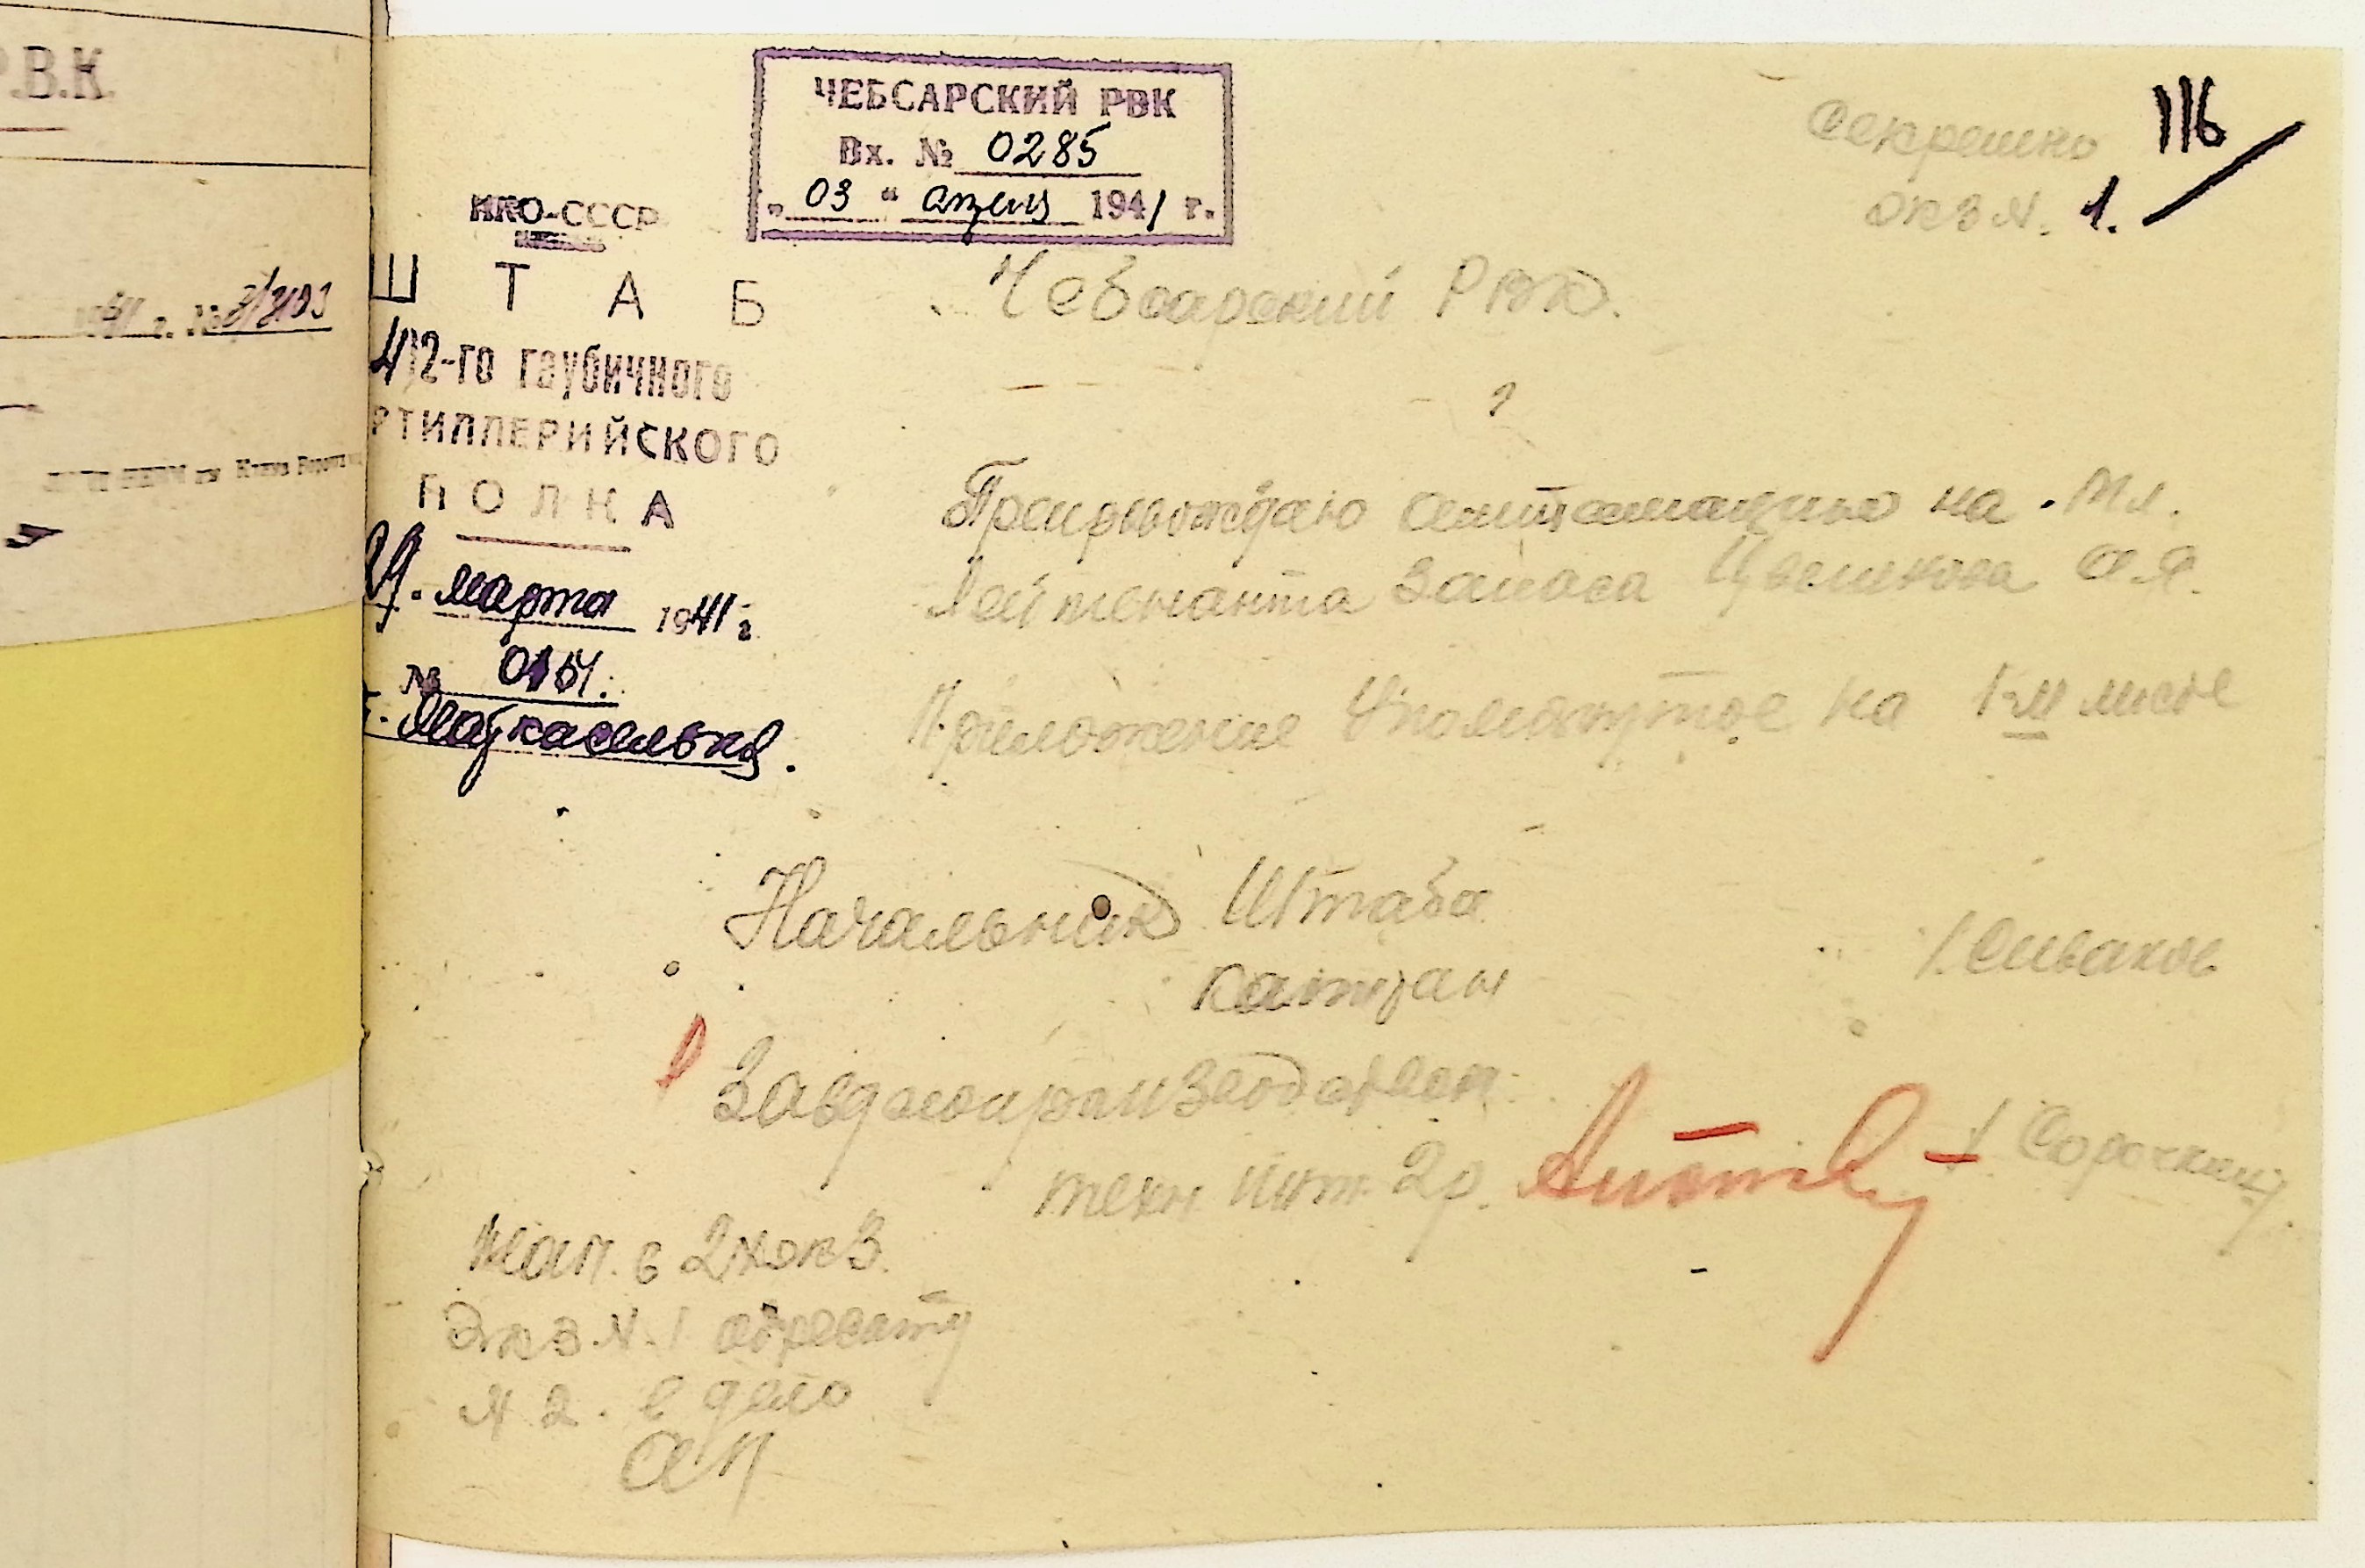 Р.В.К.
ЧЕБСАРСКИЙ РВК
Вх. № 0285
„ 03 “ апреля 1941 г.
Секретно
экз N. 1.
116
НКО-СССР
ШТАБ
412-го гаубичного
РТИЛЛЕРИЙСКОГО
ПОЛКА
марта 1941 г.
№
Чебсарский РВК.
Препровождаю аттестацию на Мл.
Лейтенанта запаса Цветкова А.Я.
Приложение Упомянутое на листе
Начальник Штаба
капитан
/. Сиваков
Завделопроизводством
техн инт. 2р. / Сорочкин/.
Нап. в 2х экз.
Экз N. 1 адресату
N 2. в дело
АП